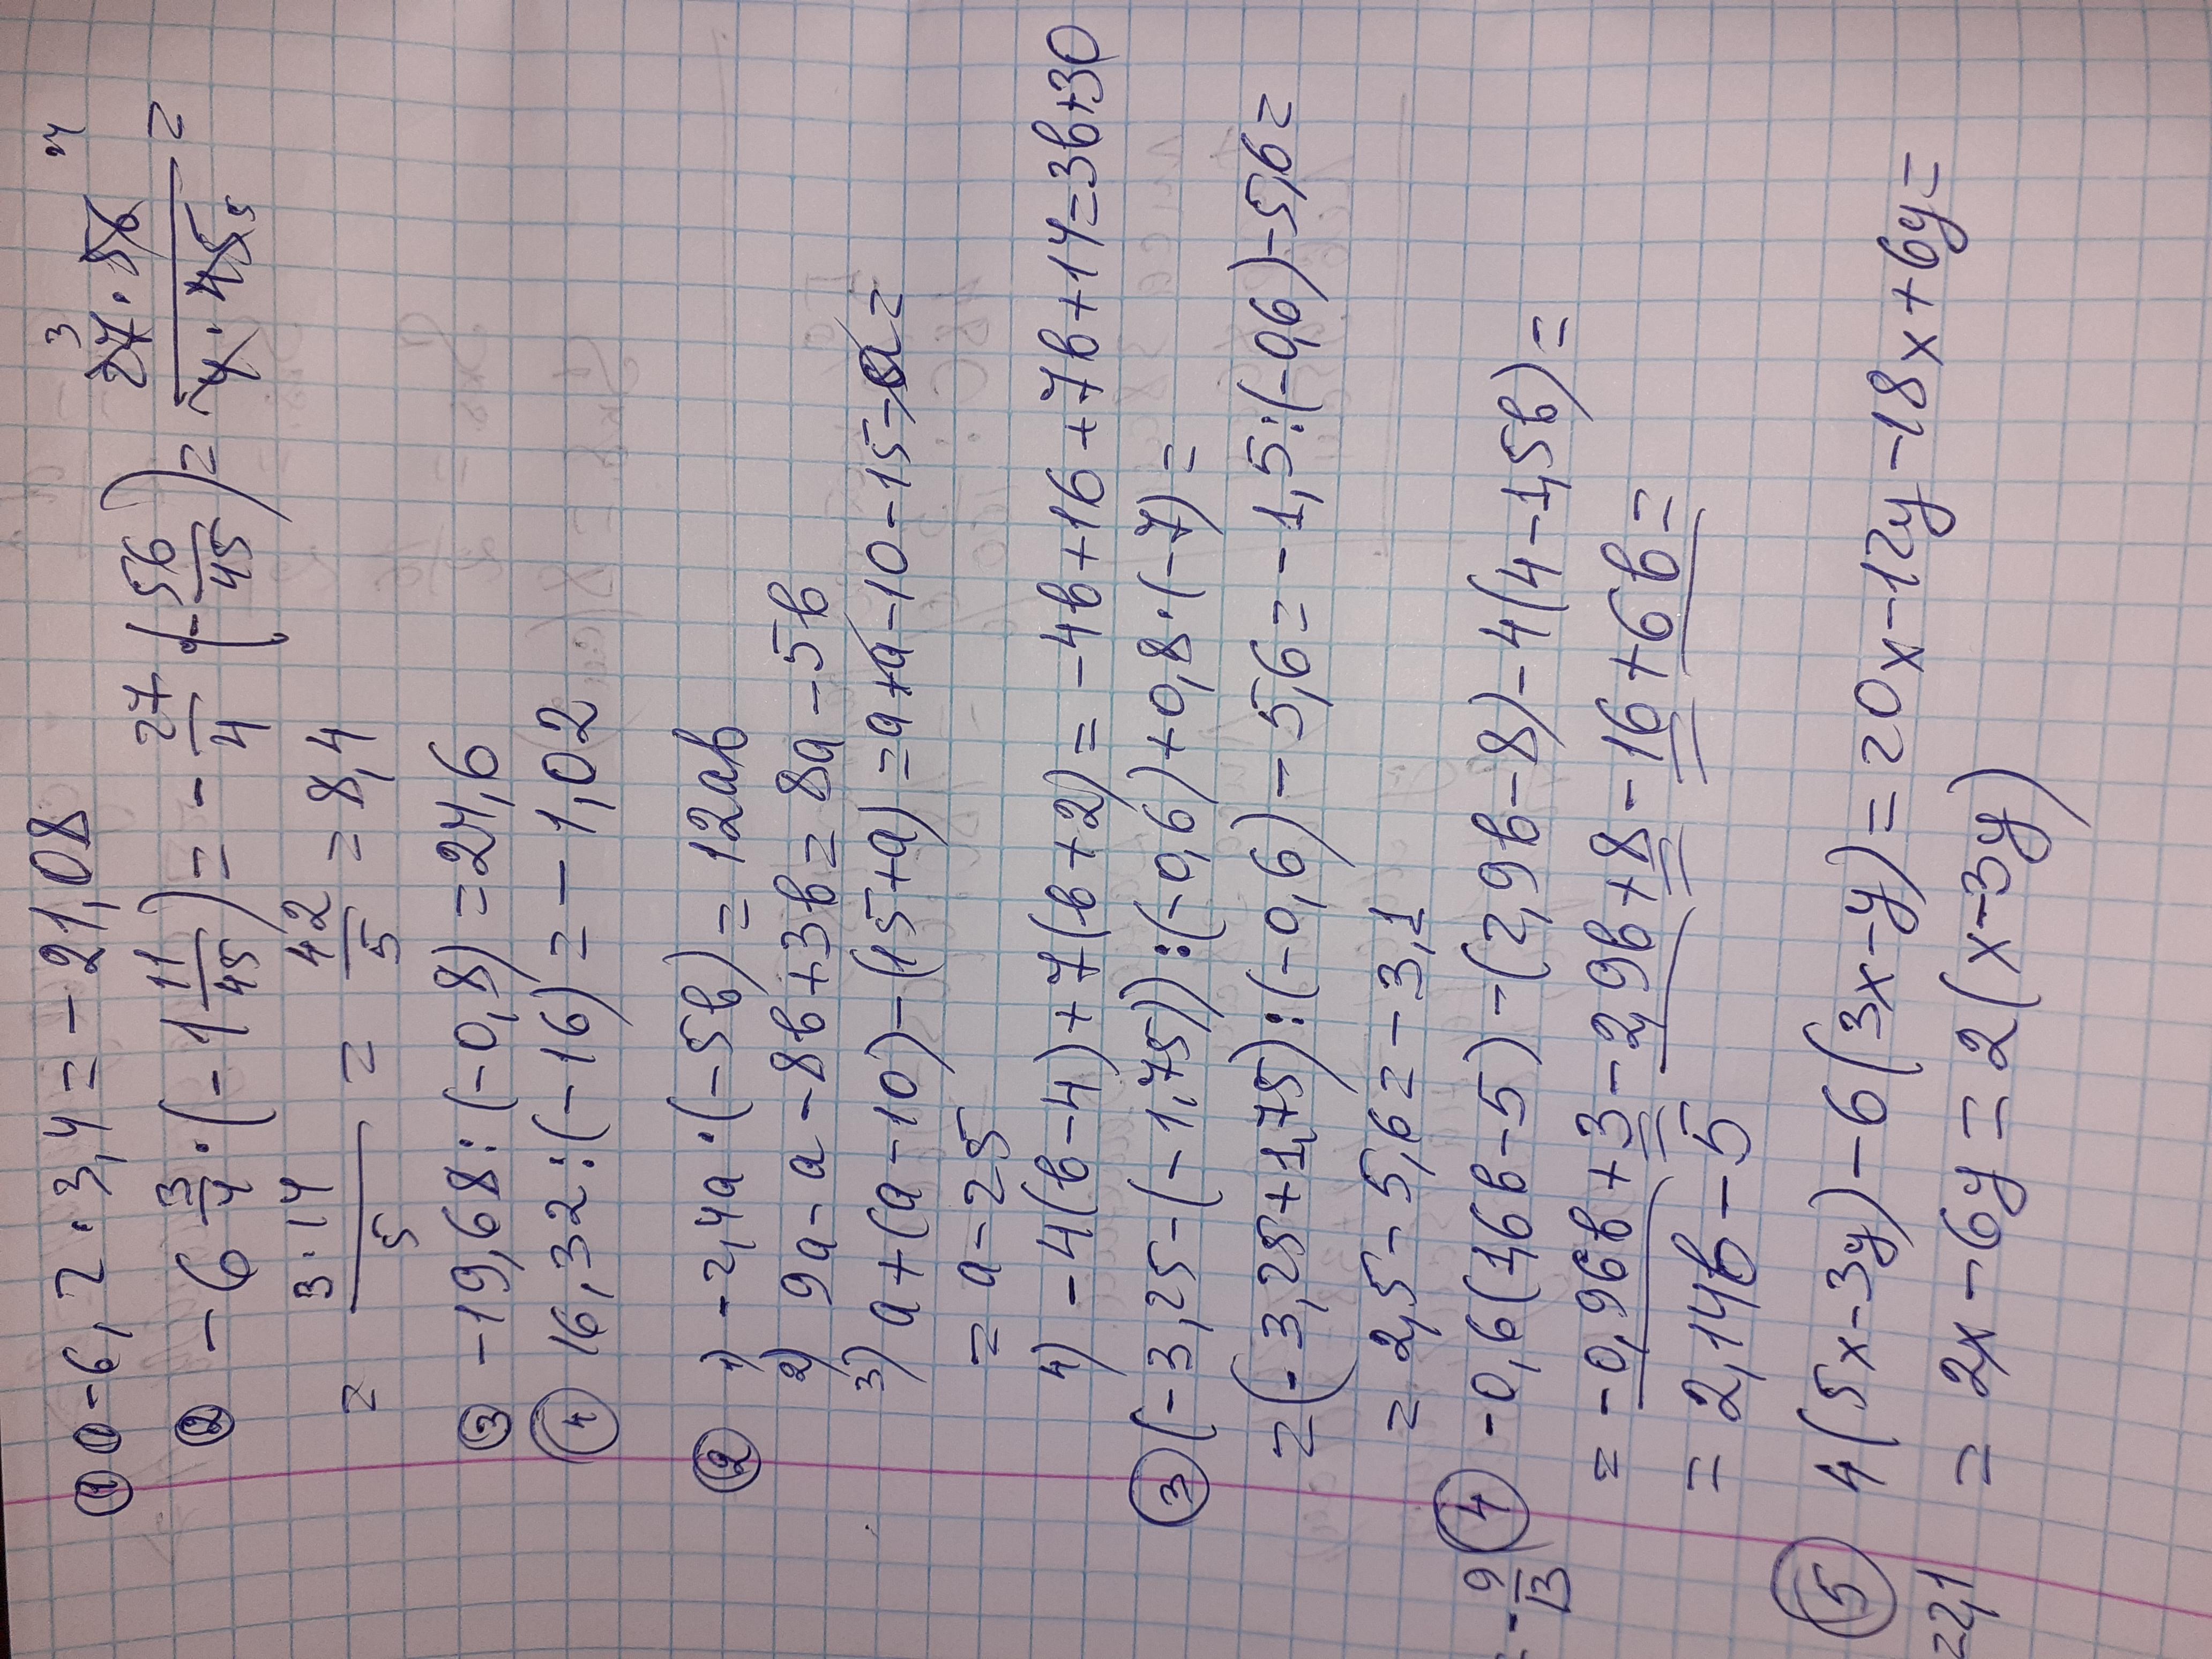 ① ① -6,2 · 3,4 = -21,08
② -6 3/4 · (-1 11/45) = -27/4 · (-56/45) = 27 · 56 / 4 · 45 =
= 3 · 14 / 5 = 42/5 = 8,4
③ -19,68 : (-0,8) = 24,6
④ 16,32 : (-16) = -1,02
② 1) -2,4a · (-5b) = 12ab
2) 9a - a - 8b + 3b = 8a - 5b
3) a + (a - 10) - (15 + a) = a + a - 10 - 15 - a =
= a - 25
4) -4(b - 4) + 7(b + 2) = -4b + 16 + 7b + 14 = 3b + 30
③ (-3,25 - (-1,75)) : (-0,6) + 0,8 · (-7) =
= (-3,25 + 1,75) : (-0,6) - 5,6 = -1,5 : (-0,6) - 5,6 =
= 2,5 - 5,6 = -3,1
④ -0,6(1,6b - 5) - (2,9b - 8) - 4(4 - 1,5b) =
= -0,96b + 3 - 2,9b + 8 - 16 + 6b =
= 2,14b - 5
⑤ 4(5x - 3y) - 6(3x - y) = 20x - 12y - 18x + 6y =
= 2x - 6y = 2(x - 3y)
- 9/13
= 2,1